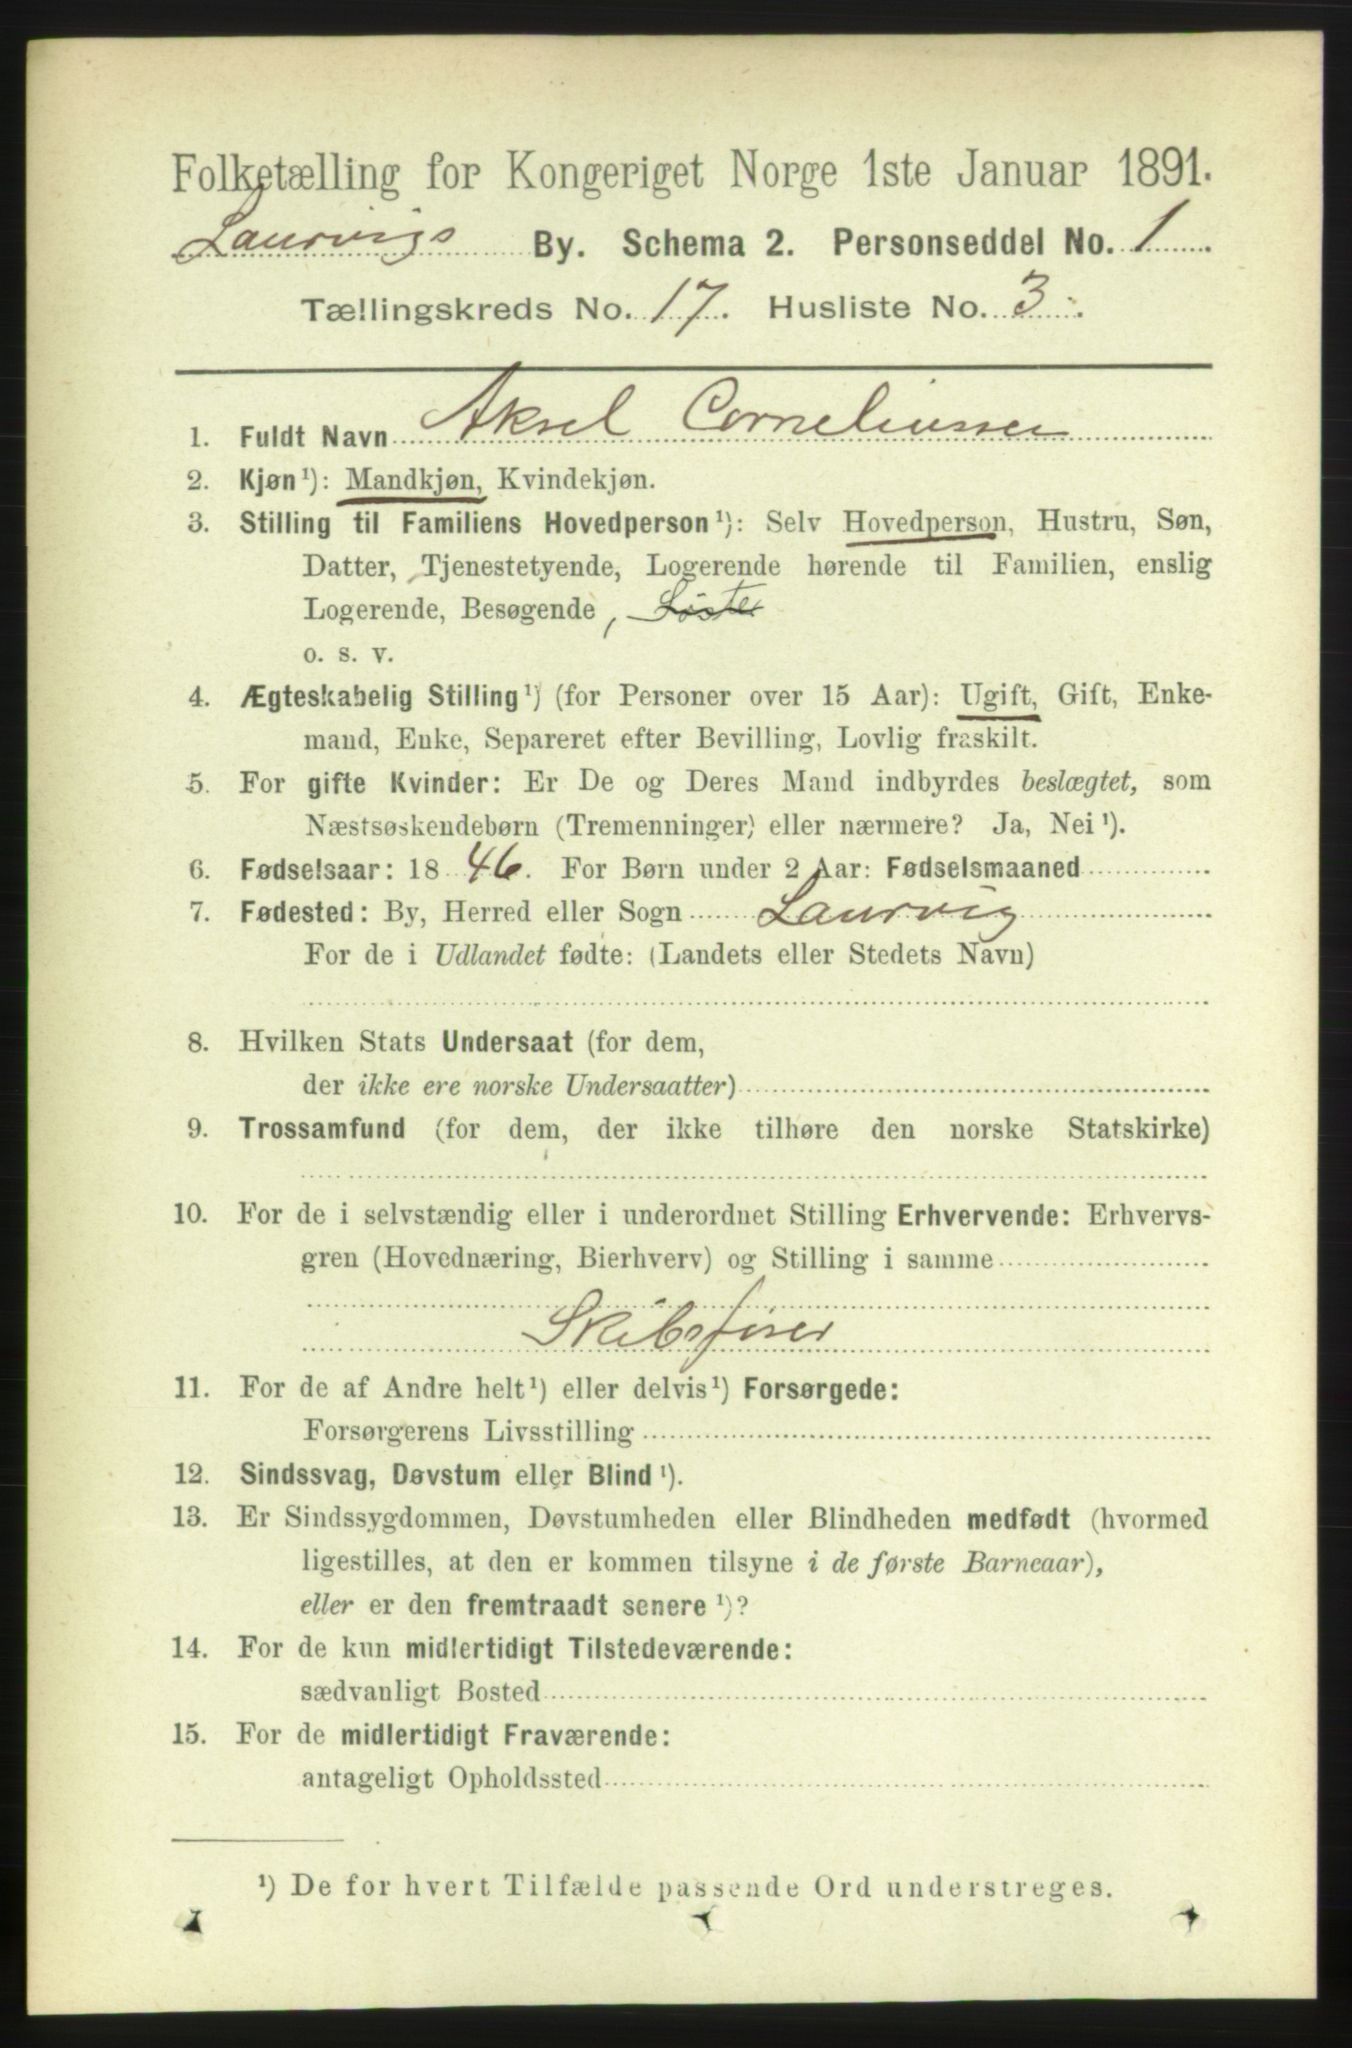 Folketælling for Kongeriget Norge 1ste Januar 1891.
Laurvigs By. Schema 2. Personseddel No. 1
Tællingskreds No. 17. Husliste No. 3.
1. Fuldt Navn Aksel Corneliussen
2. Kjøn¹): Mandkjøn, Kvindekjøn.
3. Stilling til Familiens Hovedperson¹): Selv Hovedperson, Hustru, Søn,
Datter, Tjenestetyende, Logerende hørende til Familien, enslig
Logerende, Besøgende,
o. s. v.
4. Ægteskabelig Stilling¹) (for Personer over 15 Aar): Ugift, Gift, Enke-
mand, Enke, Separeret efter Bevilling, Lovlig fraskilt.
5. For gifte Kvinder: Er De og Deres Mand indbyrdes beslægtet, som
Næstsøskendebørn (Tremenninger) eller nærmere? Ja, Nei¹).
6. Fødselsaar: 1846. For Børn under 2 Aar: Fødselsmaaned
7. Fødested: By, Herred eller Sogn Laurvig
For de i Udlandet fødte: (Landets eller Stedets Navn)
8. Hvilken Stats Undersaat (for dem,
der ikke ere norske Undersaatter)
9. Trossamfund (for dem, der ikke tilhøre den norske Statskirke)
10. For de i selvstændig eller i underordnet Stilling Erhvervende: Erhvervs-
gren (Hovednæring, Bierhverv) og Stilling i samme
Skibsfører
11. For de af Andre helt¹) eller delvis¹) Forsørgede:
Forsørgerens Livsstilling
12. Sindssvag, Døvstum eller Blind¹).
13. Er Sindssygdommen, Døvstumheden eller Blindheden medfødt (hvormed
ligestilles, at den er kommen tilsyne i de første Barneaar),
eller er den fremtraadt senere¹)?
14. For de kun midlertidigt Tilstedeværende:
sædvanligt Bosted
15. For de midlertidigt Fraværende:
antageligt Opholdssted
¹) De for hvert Tilfælde passende Ord understreges.